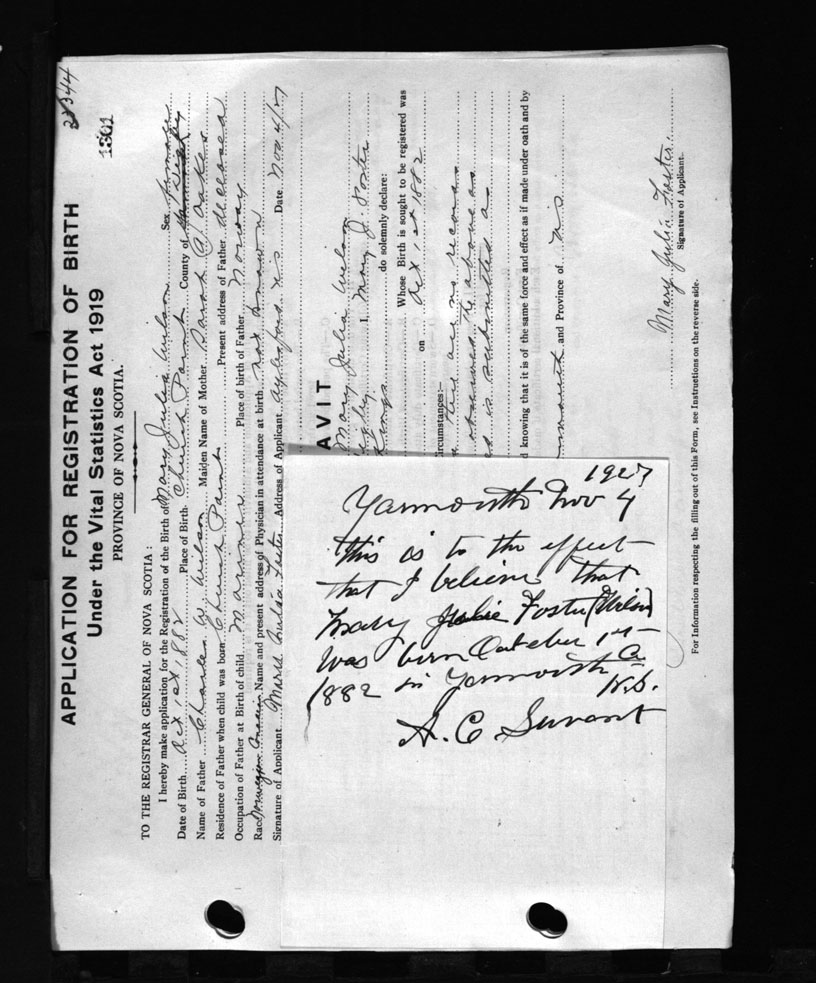 22344
1801
APPLICATION FOR REGISTRATION OF BIRTH
Under the Vital Statistics Act 1919
PROVINCE OF NOVA SCOTIA.
TO THE REGISTRAR GENERAL OF NOVA SCOTIA :
I hereby make application for the Registration of the Birth of Mary Julia Wilson Sex Female
Date of Birth Oct 1st 1882 Place of Birth Church Point County of Digby
Name of Father Charles W Wilson Maiden Name of Mother Sarah Oakes
Residence of Father when child was born Church Point Present address of Father deceased
Occupation of Father at Birth of child Mariner Place of birth of Father Norway
Race Norwegian Name and present address of Physician in attendance at birth not known
Signature of Applicant Julia Foster Address of Applicant Aylesford NS Date Nov 4/27
AVIT
Mary Julia Wilson
I, Mary J. Foster
Kings do solemnly declare:
Whose Birth is sought to be registered was
on Oct 1st 1882
ircumstances:—
no record
the above as
is submitted as
d knowing that it is of the same force and effect as if made under oath and by
and Province of N S
Mary Julia Foster
Signature of Applicant.
For Information respecting the filling out of this Form, see Instructions on the reverse side.
1927
Yarmouth Nov 4
This is to the effect
that I believe that
Mary Julia Foster (Wilson)
was born October 1st
1882 in Yarmouth Co
N.S.